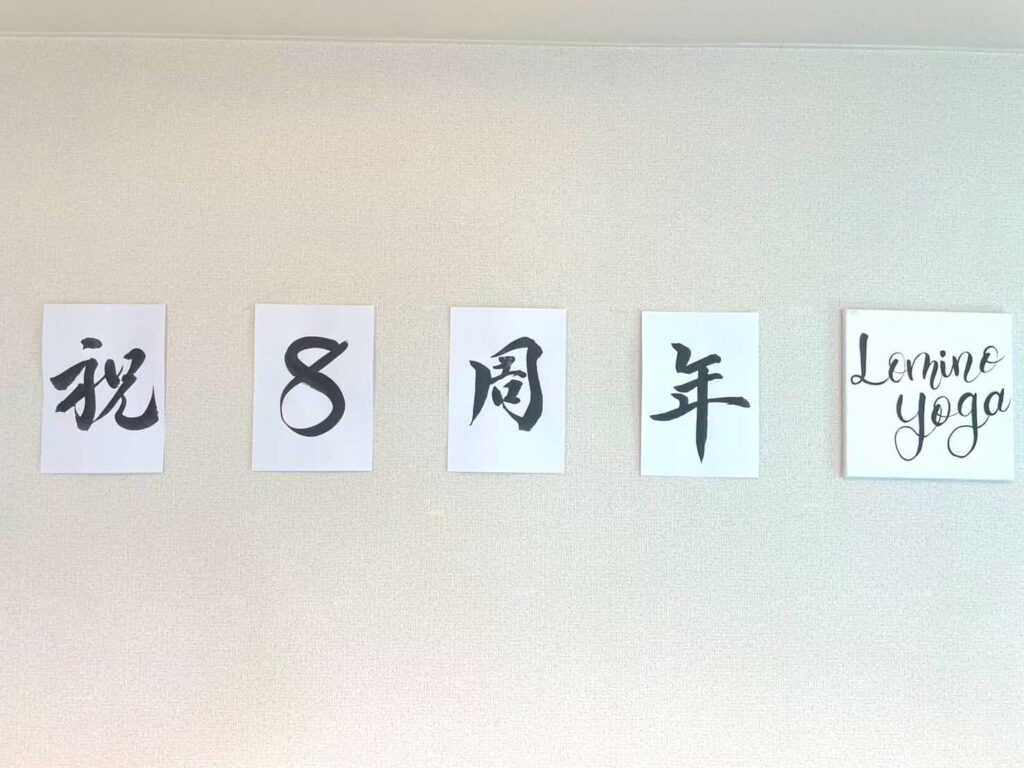 祝8周年
Lomino
yoga